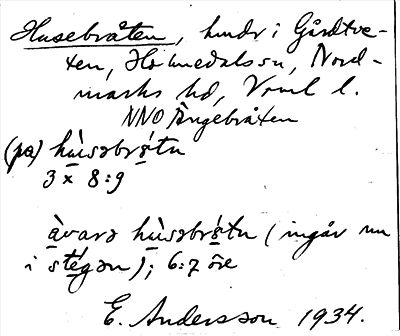 Husebråten, hmdr i Gårdtve-
ten, Holmedals sn, Nord-
marks hd, Vrml l.
NNO Ängebråten
(på) hùsəbrɷ́tn
3 x 8:9
àvarə hùsəbrɷ́tn (ingår nu
i stégən); 6:7 öre
E. Andersson 1934.